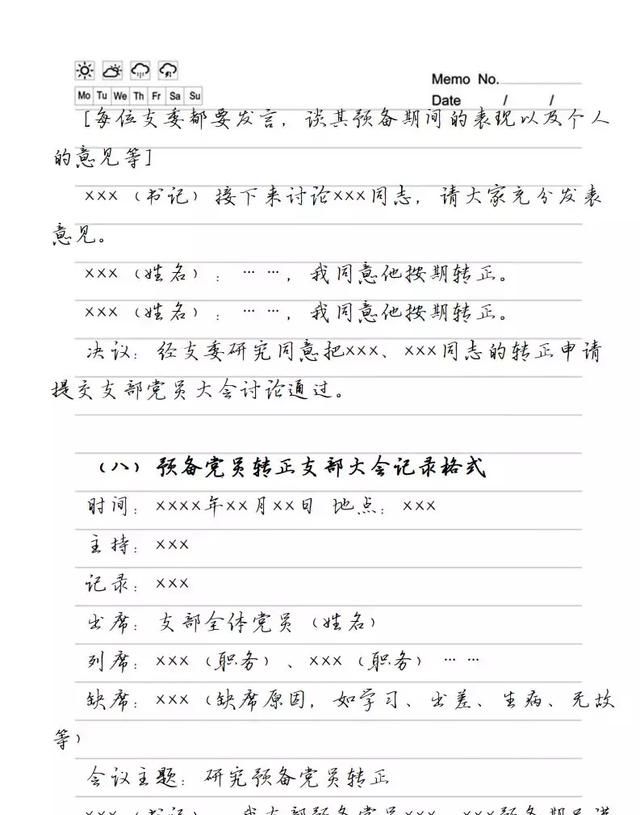 Memo No.
Mo Tu We Th Fr Sa Su
Date / /
[每位支委都要发言，谈其预备期间的表现以及个人
的意见等]
×××（书记）接下来讨论×××同志，请大家充分发表
意见。
×××（姓名）：……，我同意他按期转正。
×××（姓名）：……，我同意他按期转正。
决议：经支委研究同意把×××、×××同志的转正申请
提交支部党员大会讨论通过。
（八）预备党员转正支部大会记录格式
时间：××××年××月××日 地点：×××
主持：×××
记录：×××
出席：支部全体党员（姓名）
列席：×××（职务）、×××（职务）……
缺席：×××（缺席原因，如学习、出差、生病、无故
等）
会议主题：研究预备党员转正